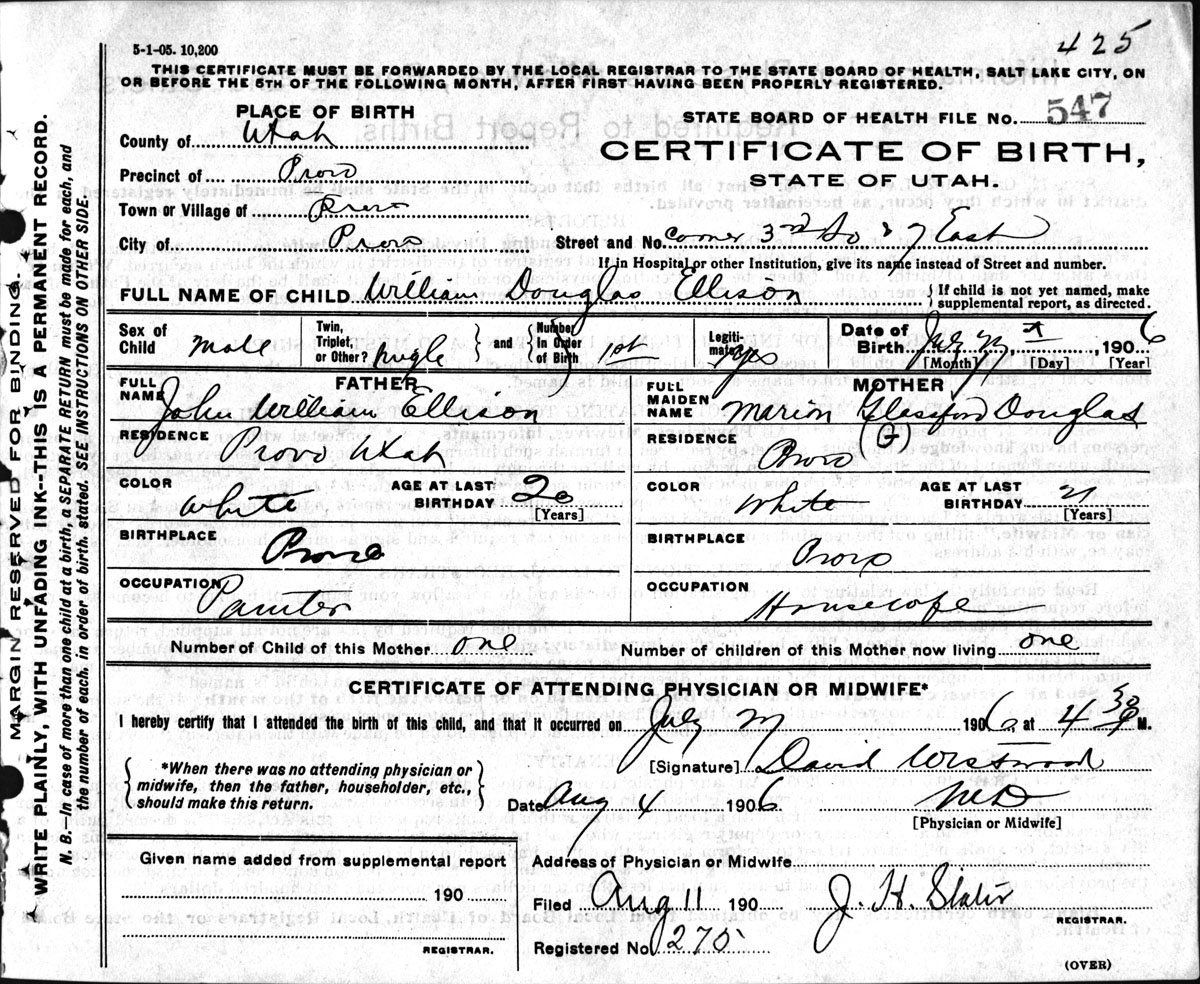 425
5-1-05. 10,200
THIS CERTIFICATE MUST BE FORWARDED BY THE LOCAL REGISTRAR TO THE STATE BOARD OF HEALTH, SALT LAKE CITY, ON
OR BEFORE THE 5TH OF THE FOLLOWING MONTH, AFTER FIRST HAVING BEEN PROPERLY REGISTERED.
PLACE OF BIRTH
STATE BOARD OF HEALTH FILE No. 547
County of Utah
CERTIFICATE OF BIRTH,
STATE OF UTAH.
Precinct of Provo
Town or Village of Provo
City of Provo Street and No. Corner 3rd So & 7 East
If in Hospital or other Institution, give its name instead of Street and number.
FULL NAME OF CHILD William Douglas Ellison { If child is not yet named, make supplemental report, as directed.
Sex of Child Male Twin, Triplet, or Other? Single } and { Number in Order of Birth 1st Legitimate? yes Date of Birth July 1906
[Month] [Day] [Year]
FATHER
FULL NAME John William Ellison
RESIDENCE Provo Utah
COLOR White AGE AT LAST BIRTHDAY
[Years]
BIRTHPLACE Provo
OCCUPATION Painter
MOTHER
FULL MAIDEN NAME Marion Glassford Douglas
(G)
RESIDENCE Provo
COLOR White AGE AT LAST BIRTHDAY 21
[Years]
BIRTHPLACE Provo
OCCUPATION
Number of Child of this Mother one Number of children of this Mother now living one
CERTIFICATE OF ATTENDING PHYSICIAN OR MIDWIFE*
I hereby certify that I attended the birth of this child, and that it occurred on July 1906, at 4 30 M.
{ *When there was no attending physician or midwife, then the father, householder, etc., should make this return. }
[Signature] David Westwood
Date Aug 4 1906 MD
[Physician or Midwife]
Given name added from supplemental report
190
REGISTRAR.
Address of Physician or Midwife
Filed Aug 11 190 J. H. Slater
REGISTRAR.
Registered No. 275
(OVER)
MARGIN RESERVED FOR BINDING.
WRITE PLAINLY, WITH UNFADING INK--THIS IS A PERMANENT RECORD.
N. B.—In case of more than one child at a birth, a SEPARATE RETURN must be made for each, and
the number of each, in order of birth, stated. SEE INSTRUCTIONS ON OTHER SIDE.